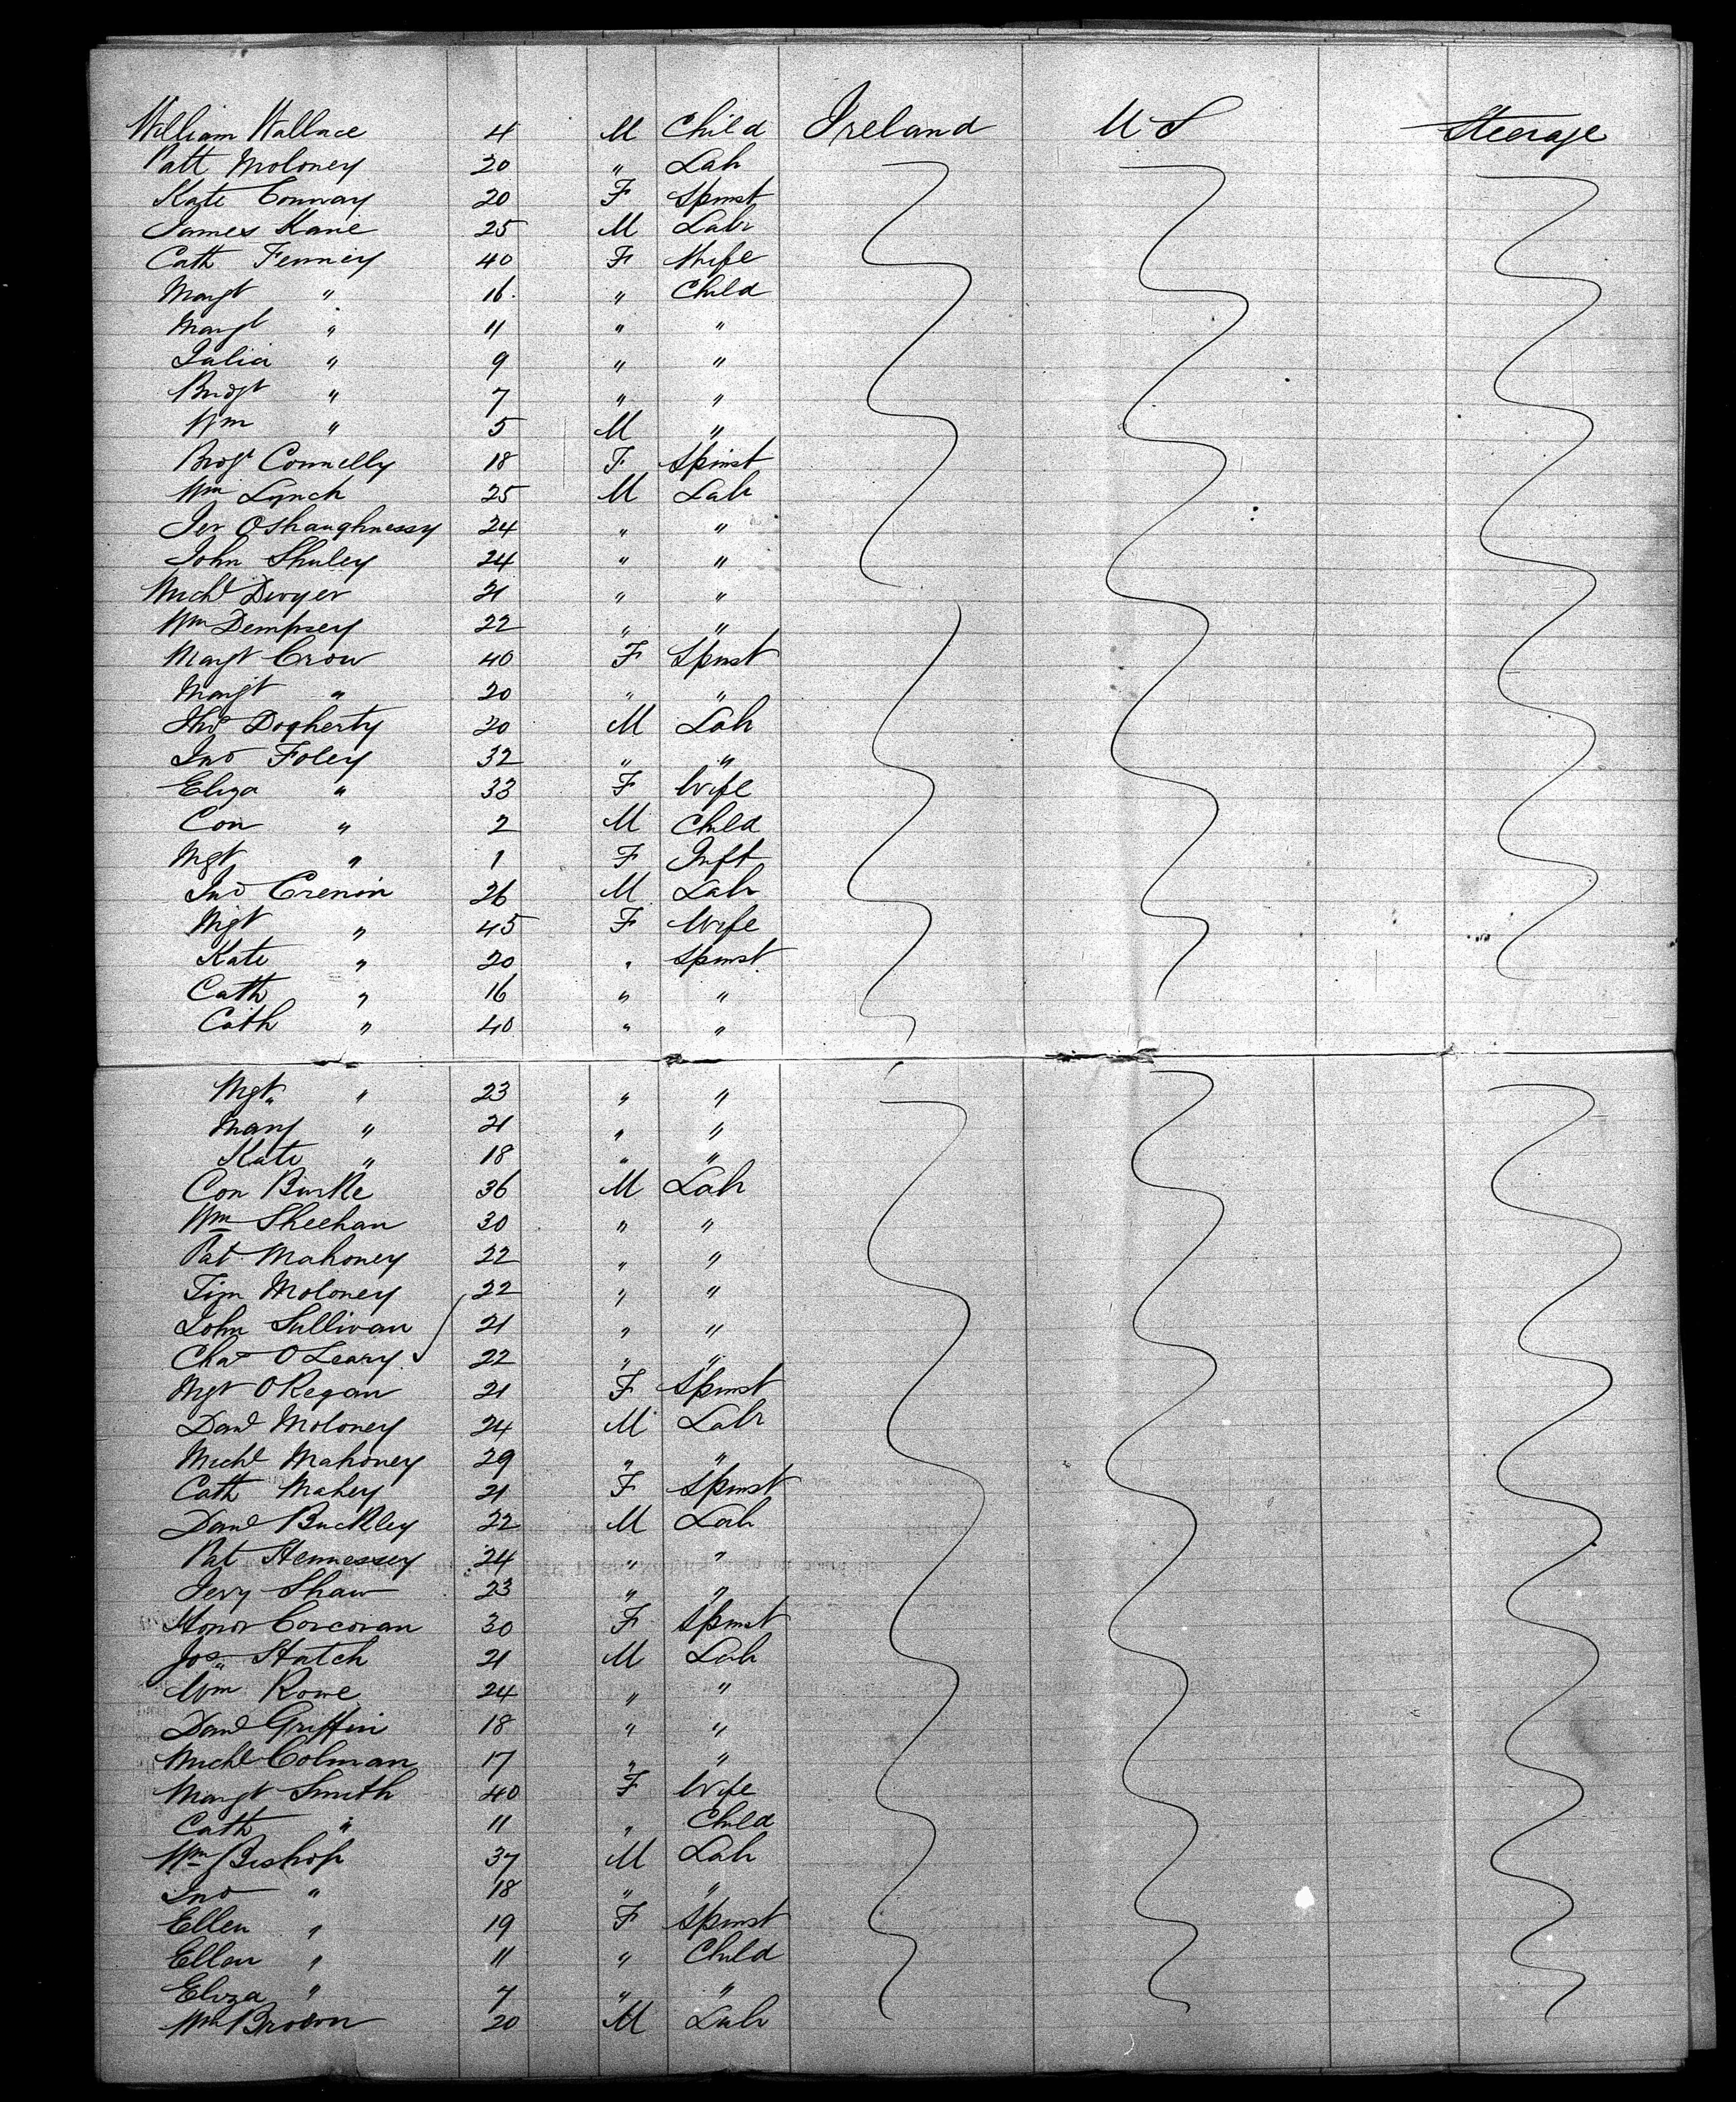 William Wallace 4 M Child Ireland U S Steerage
Patt Moloney 20 " Lab
Kate Conway 20 F Spinst
James Kane 25 M Labr
Cath Fenney 40 F Wife
Margt " 16 " Child
Margt " 11 " "
Julia " 9 " "
Bridgt " 7 " "
Wm " 5 M "
Bridgt Connelly 18 F Spinst
Wm Lynch 25 M Lab
Jer OShaughnessy 24 " "
John Shuley 24 " "
Michl Dwyer 21 " "
Wm Dempsey 22 " "
Margt Crow 40 F Spinst
Margt " 20 " "
Thos Dogherty 20 M Lab
Jno Foley 32 " "
Eliza " 33 F Wife
Con " 2 M Child
Mgt " 1 F Inft
Jno Crenin 26 M Lab
Mgt " 45 F Wife
Kate " 20 " Spinst
Cath " 16 " "
Cath " 40 " "
Mgt " 23 " "
Mary " 21 " "
Kate " 18 " "
Con Burke 36 M Lab
Wm Sheehan 30 " "
Pat Mahoney 22 " "
Tim Moloney 22 " "
John Sullivan 21 " "
Chas O Leary 22 " "
Mgt ORegan 21 F Spinst
Danl Moloney 24 M Labr
Michl Mahoney 29 " "
Cath Mahey 21 F Spinst
Danl Buckley 22 M Lab
Pat Hennessey 24 " "
Jery Shaw 23 " "
Honor Corcoran 30 F Spinst
Jos Hatch 21 M Lab
Wm Rowe 24 " "
Danl Griffin 18 " "
Michl Colman 17 " "
Margt Smith 40 F Wife
Cath " 11 " Child
Wm Bishop 37 M Lab
Jno " 18 " "
Ellen " 19 F Spinst
Ellen " 11 " Child
Eliza " 7 " "
Wm Brown 20 M Lab